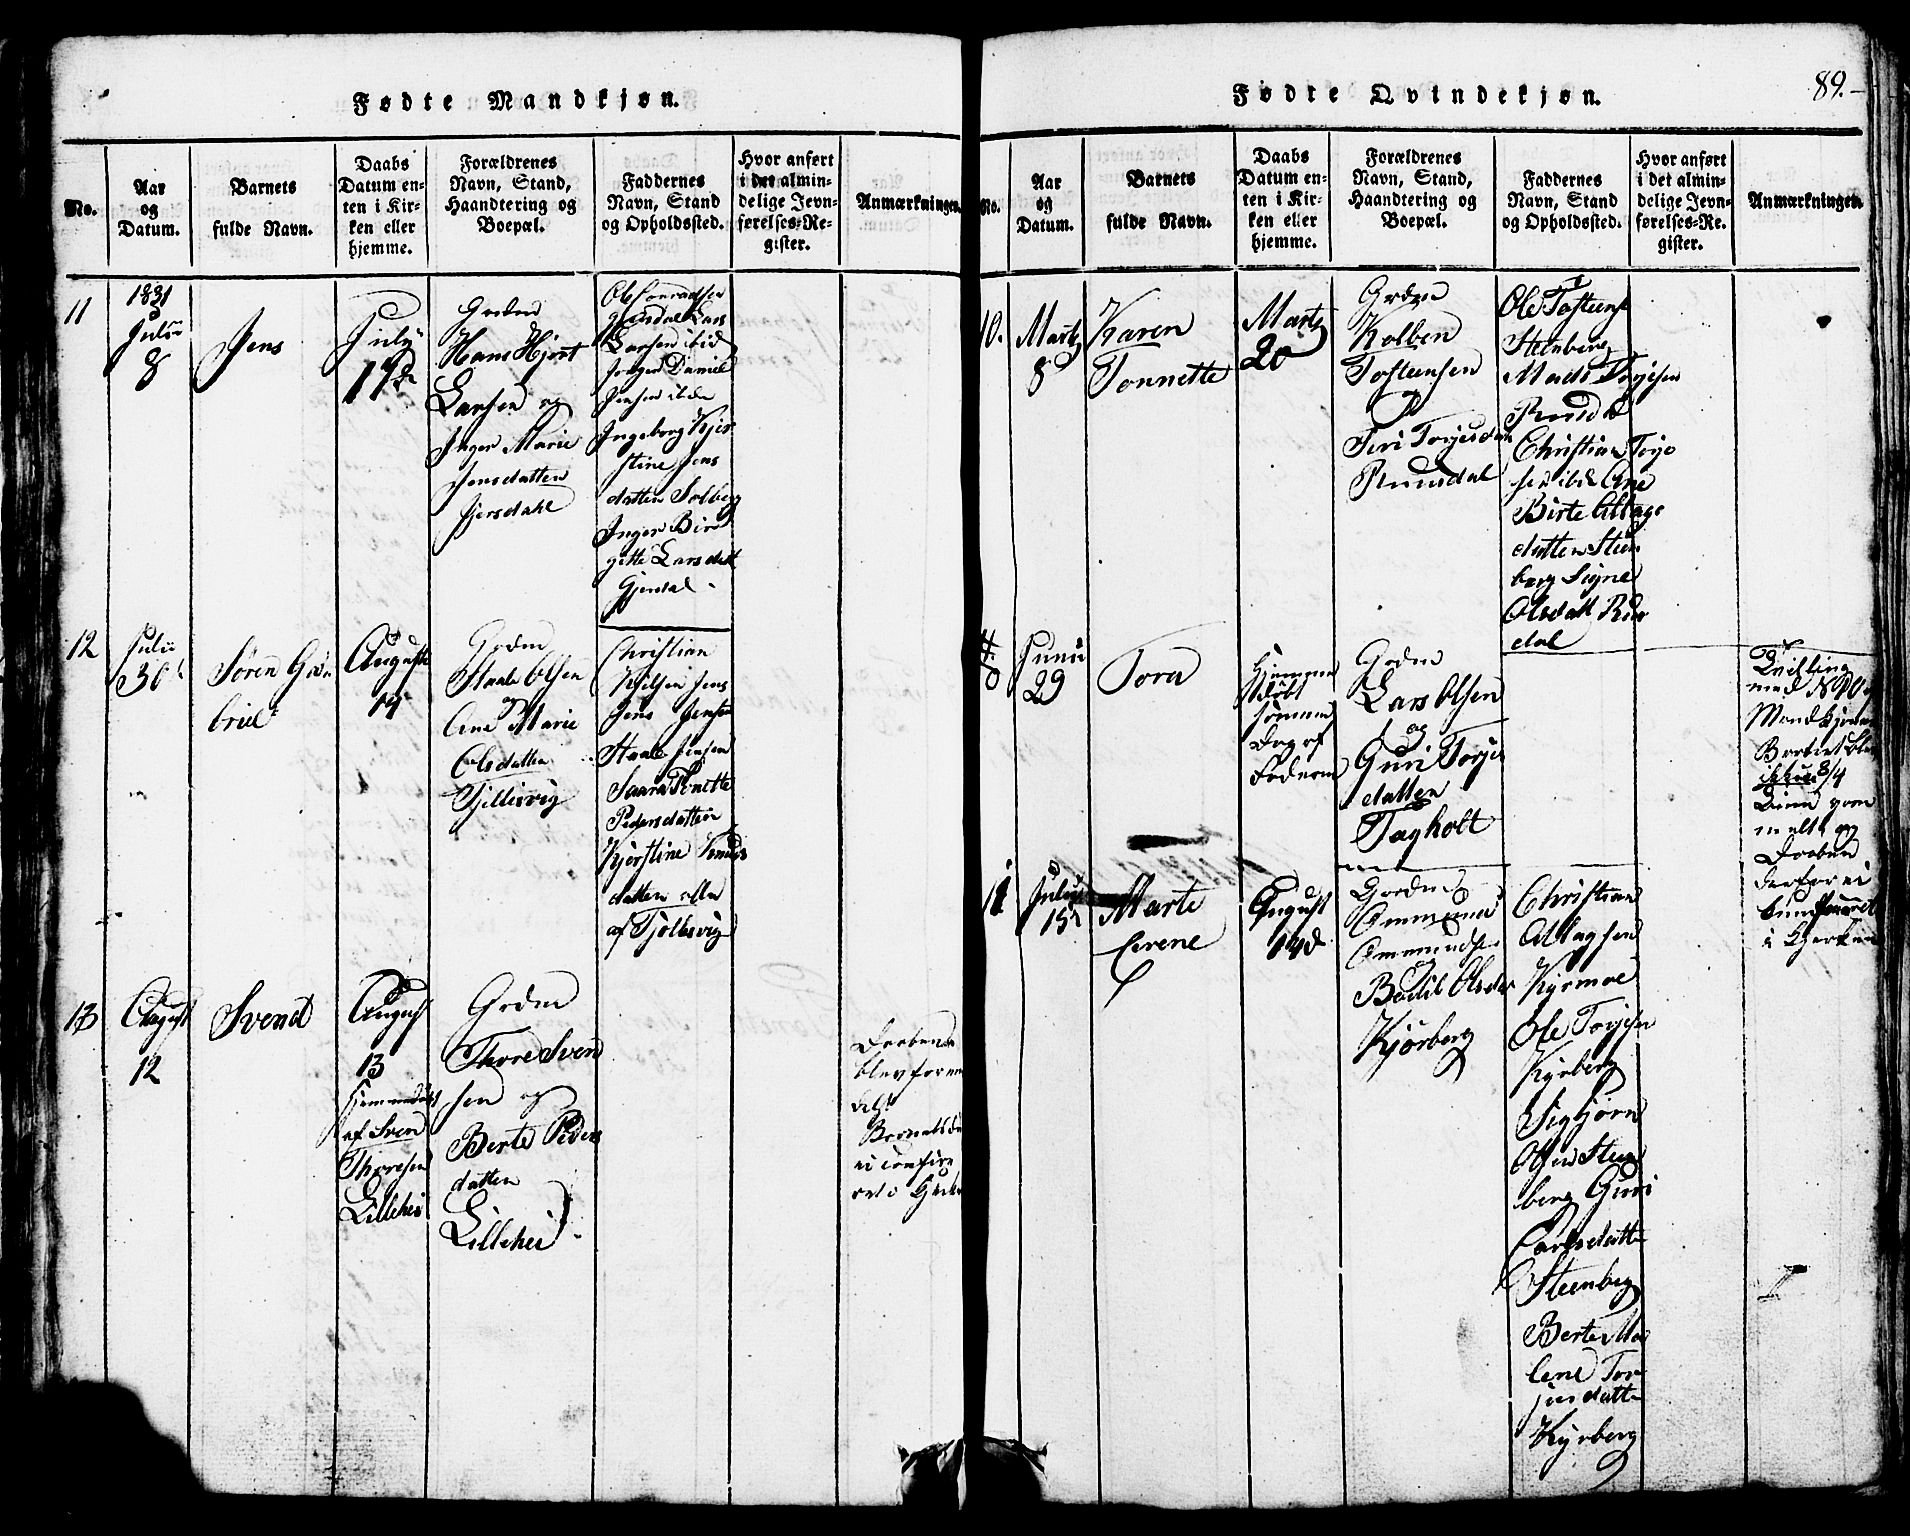 Fødte Mandkjøn.
No.
Aar
og
Datum.
Barnets
fulde Navn.
Daabs
Datum en-
ten i Kir-
ken eller
hjemme.
Forældrenes
Navn, Stand,
Haandtering og
Boepæl.
Faddernes
Navn, Stand
og Opholdssted.
Hvor anført
i det almin-
delige Jevn-
førelses-Re-
gister.
Anmærkninger.
11
1831
Julii
8
Jens
July
17d
Grdm
Hans Hjort
Larsen og
Inger Marie
Jensdatten
Gjersdahl
Ole Conradsen
Gjersdal Lars
Larsen ibid
Daniel
Jensen ibid
Ingeborg Kjer
stine Jens
datten Solberg
Inger Bir
gitte Larsdatt
Gjersdal
12
Julii
30
Søren Ga
briel
August
14
Grdm
Staale Olsen
og
Ane Marie
Olsdatten
Tjellesvig
Christian
Nielsen
Jens Jensen
Staale Jensen
Saara Tonette
Pedersdatten
Kjerstine Knuds
datten alle
af Tjøllesvig
13
August
12
Svend
August
13
Hjemmedøbt
af Sven
Thoresen
Lillehei
Grdm
Thore Sven
sen og
Berte Peders
datten
Lillehei
Daaben
blev for
Barnets
ei
Fødte Qvindekjøn.
89.
No.
Aar
og
Datum.
Barnets
fulde Navn.
Daabs
Datum en-
ten i Kir-
ken eller
hjemme.
Forældrenes
Navn, Stand,
Haandtering og
Boepæl.
Faddernes
Navn, Stand
og Opholdssted.
Hvor anført
i det almin-
delige Jevn-
førelses-Re-
gister.
Anmærkninger.
10.
Marts
8
Karen
Tonnette
Marts
20
Grdm
Kolben
Tosteensen
og
Siri Torjesdatt
Rumsdal
Ole Tosteens
Steenberg
Mads Torjesen
Christian Torje
sen ibid Ane
Birte Aslags
datten Steen
berg Signe
Olsdatt
dal
Junii
29
Tora
Hjemme
døbt
samme
Dag af
Faderen
Grdm
Lars Olsen
og
Guri Torjes
datten
Tagholt
Tvilling
med No
Mandkjøn
Barnet blev
8/4
Time gam
melt og
Daaben
derfor ei
i Kjerken
11
July
15
Marte
Serene
August
14d
Grdm
Ommund
Ommundsen
Bodil Olsdatt
Kjørberg
Christian
Aslagsen
Kyrmoe
Ole Torjesen
Kyrberg
Sigbjørn
Olsen Steen
berg Guri
Carlsdatt
Steenberg
Berte Ma
lene Tor
jesdatt
Kyrberg